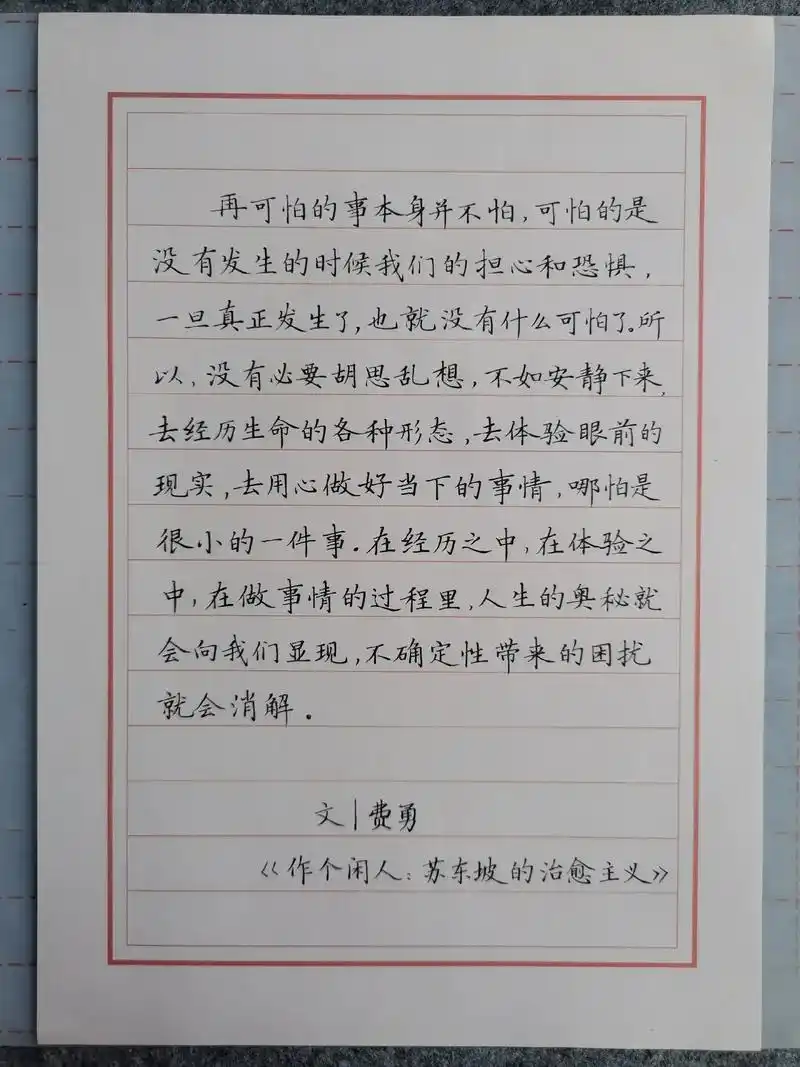 再可怕的事本身并不怕，可怕的是
没有发生的时候我们的担心和恐惧，
一旦真正发生了，也就没有什么可怕了。所
以，没有必要胡思乱想，不如安静下来，
去经历生命的各种形态，去体验眼前的
现实，去用心做好当下的事情，哪怕是
很小的一件事。在经历之中，在体验之
中，在做事情的过程里，人生的奥秘就
会向我们显现，不确定性带来的困扰
就会消解。
文|费勇
《作个闲人：苏东坡的治愈主义》